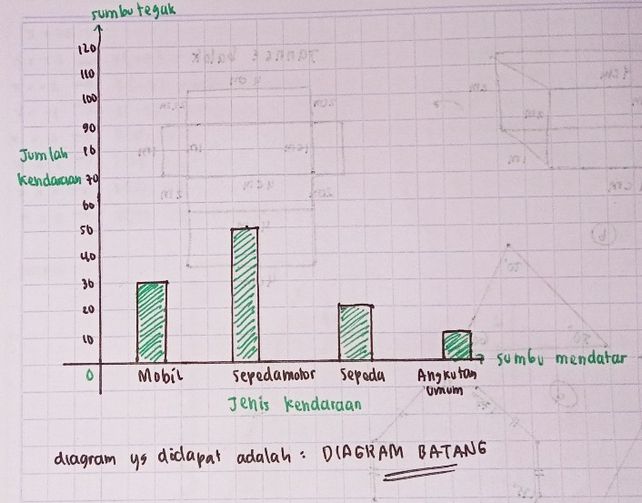 sumbu tegak
120
110
100
90
Jumlah 80
kendaraan 70
60
50
40
30
20
10
sumbu mendatar
0 Mobil Sepedamotor Sepeda Angkutan
Umum
Jenis kendaraan
diagram yg didapat adalah : DIAGRAM BATANG